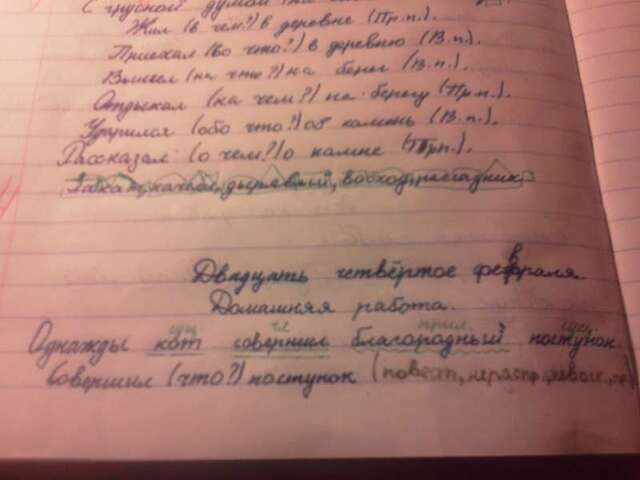 С грустной думой
Жил (в чём?) в деревне (Пр.п.).
Приехал (во что?) в деревню (В.п.).
Вышел (на что?) на берег (В.п.).
Отдыхал (на чем?) на берегу (Пр.п.).
Ударился (обо что?) об камень (В.п.).
Рассказал (о чем?) о камне (Пр.п.).
восход,
Двадцать четвёртое февраля.
Домашняя работа.
сущ гл прил. сущ.
Однажды кот совершил благородный поступок.
Совершил (что?) поступок (повест., нераспр.,